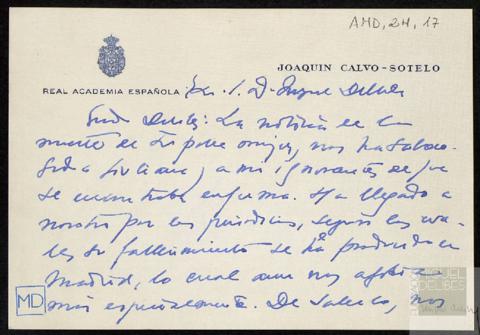 AMD, 24, 17
JOAQUIN CALVO-SOTELO
REAL ACADEMIA ESPAÑOLA
D. Miguel Delibes
Delibes: La noticia de la
muerte de su pobre mujer, nos ha
a y a mi ignorantes de que
se encontraba enferma. Ha llegado a
nosotros por los periodicos, según los cua-
les su fallecimiento se ha producido en
Madrid, lo cual aun nos
más especialmente. De saberlo, nos
MD
MIGUEL
DELIBES